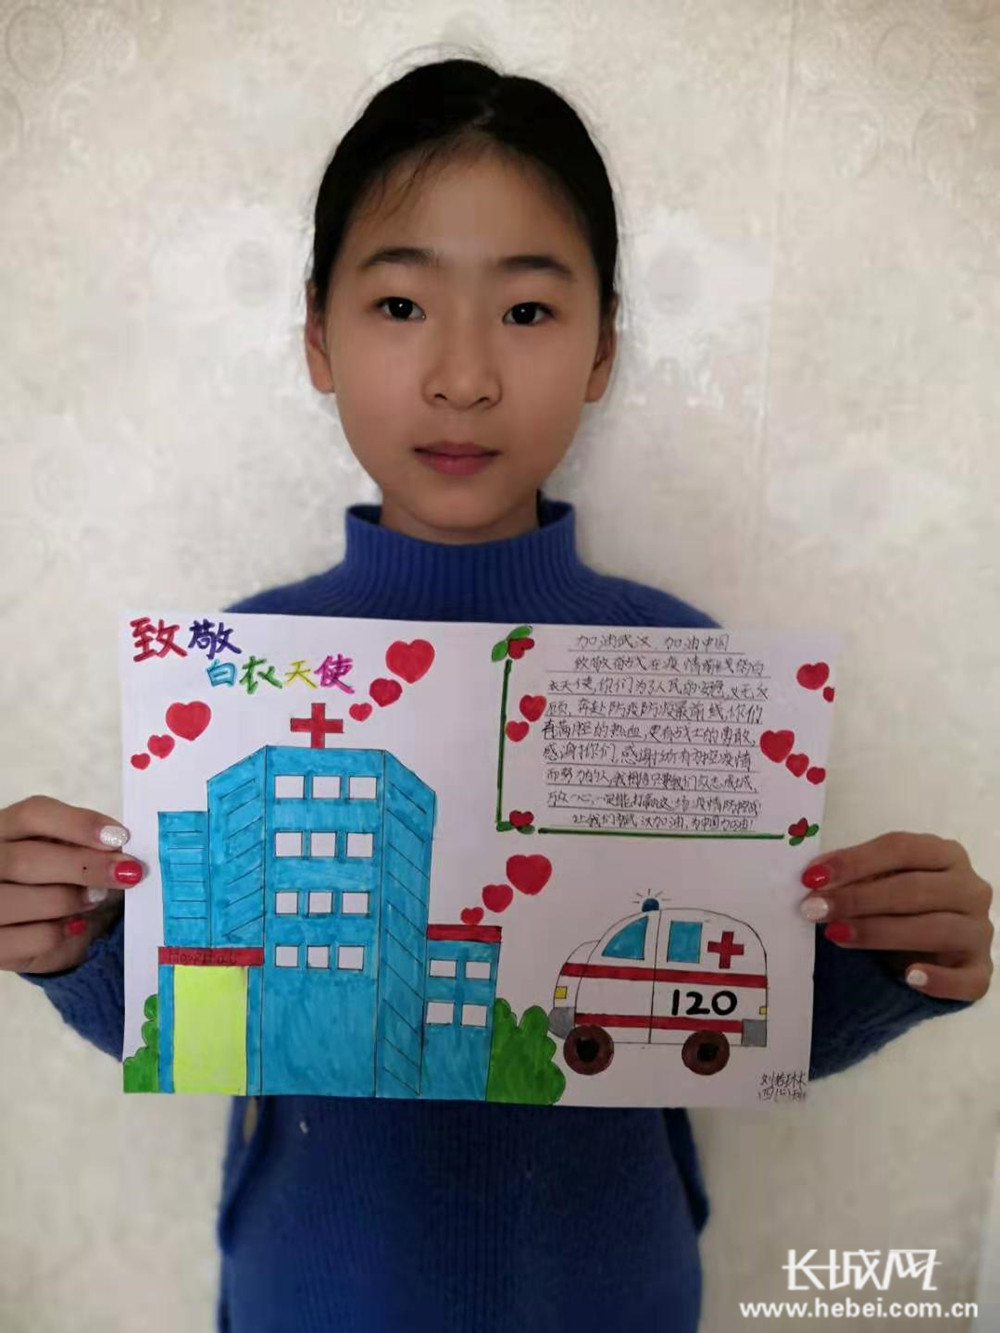 致敬
白衣天使
加油武汉 加油中国
致敬奋战在疫情前线的白
衣天使,你们为了人民的安危,义无反
顾,奔赴防疫防疫最前线,你们
有满腔的热血,更有战士的勇敢,
感谢你们,感谢所有为控疫情
而努力的人,我相信只要我们众志成城,
万众一心,一定能打赢这场疫情防控战!
让我们为武汉加油,为中国加油!
Hospital
120
四(1)班
长城网
www.hebei.com.cn